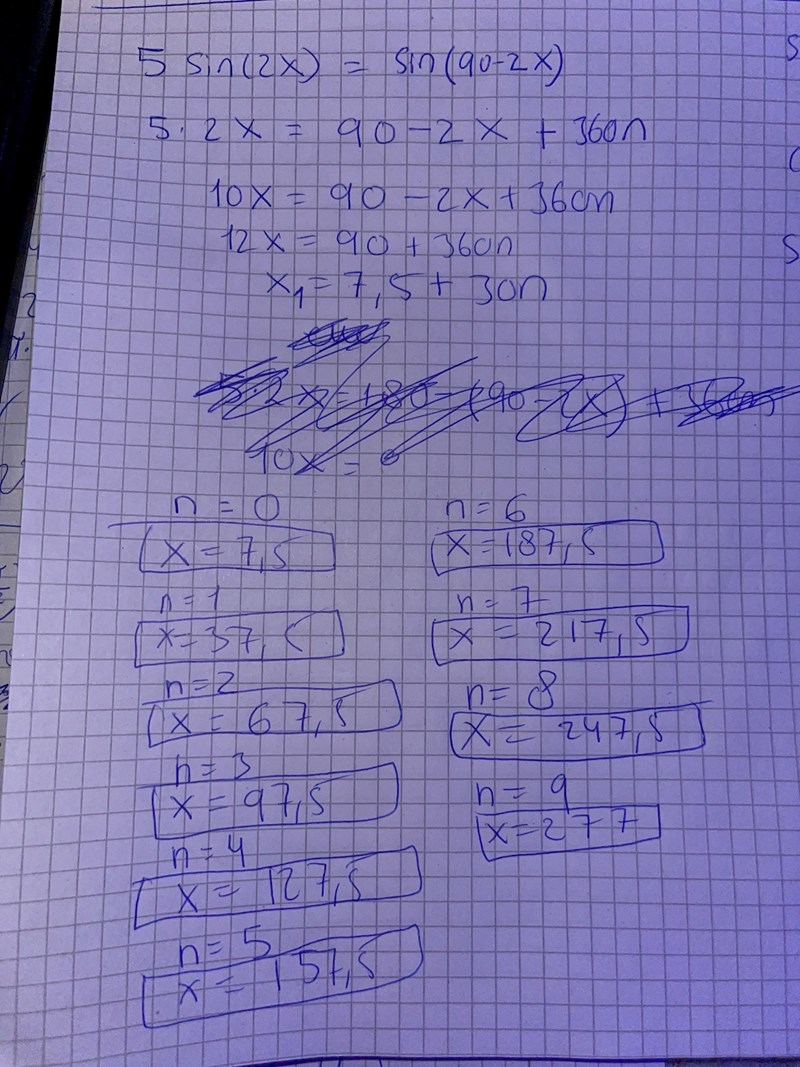 5 sin(2x) = sin(90-2x)
5·2x = 90-2x + 360n
10x = 90 - 2x + 360n
12x = 90 + 360n
x₁ = 7,5 + 30n
10x =
n = 0
x = 7,5
n = 1
x = 37,5
n = 2
x = 67,5
n = 3
x = 97,5
n = 4
x = 127,5
n = 5
x = 157,5
n = 6
x = 187,5
n = 7
x = 217,5
n = 8
x = 247,5
n = 9
x = 277